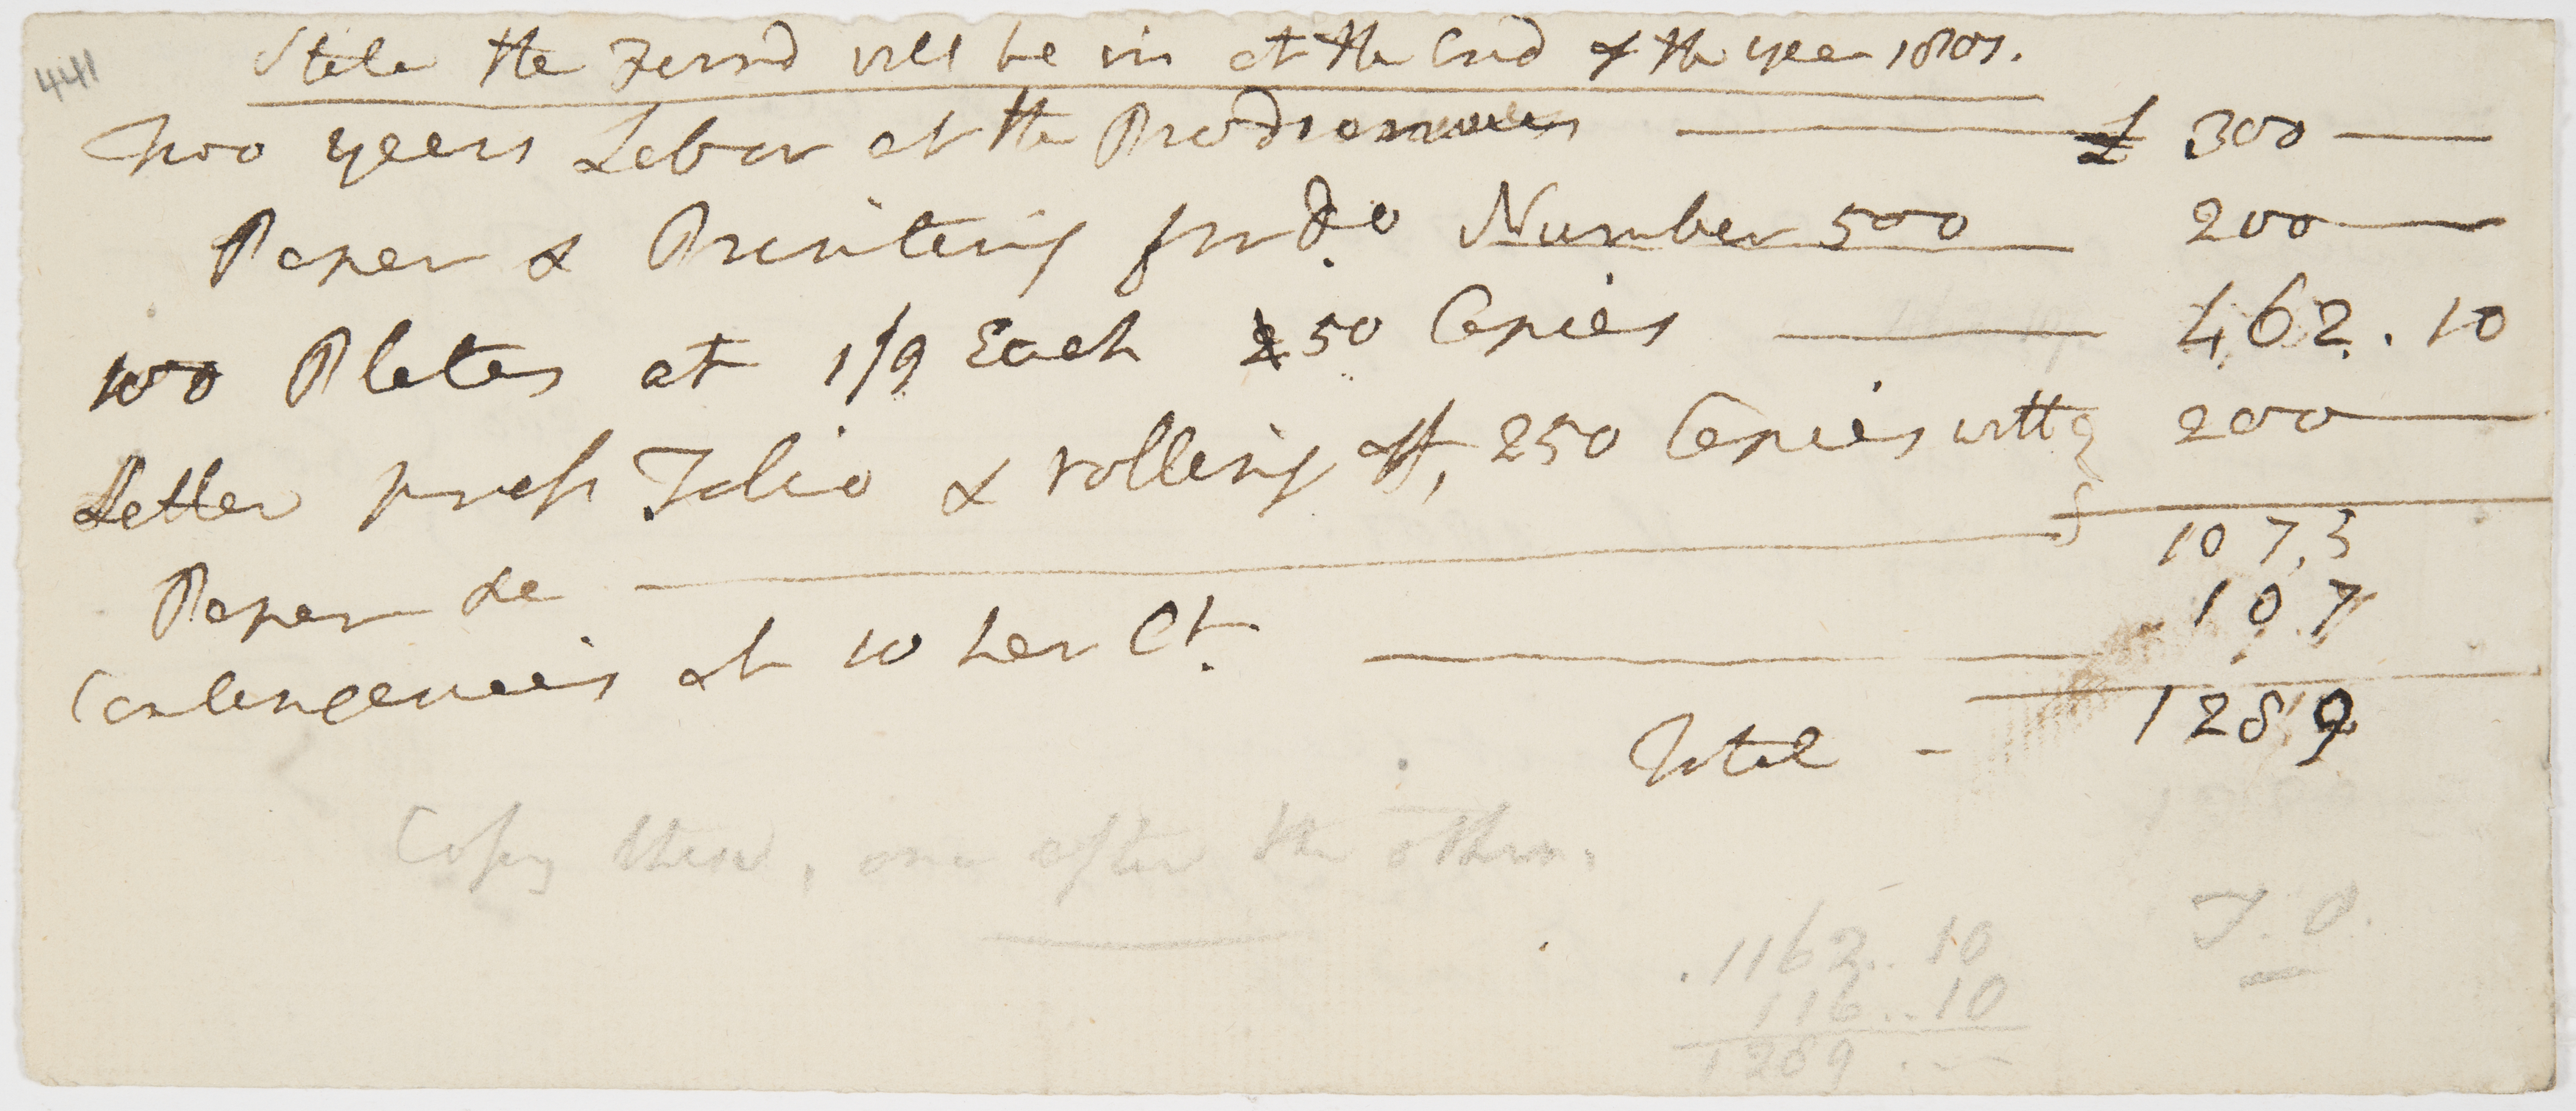 441
State the Fund will be in at the End of the year 1807.
Two years Labor at the Prodromus £ 300
Paper & Printing for Do Number 500 200
100 Plates at 1/9 Each 250 Copies 462.10
Letter press Folio & rolling off, 250 Copies with 200
Paper &c
1073
Contengencies at 10 per Ct. 107
Total - 1289
Copy these, one after the other.
T. O.
1162..10
116..10
1289